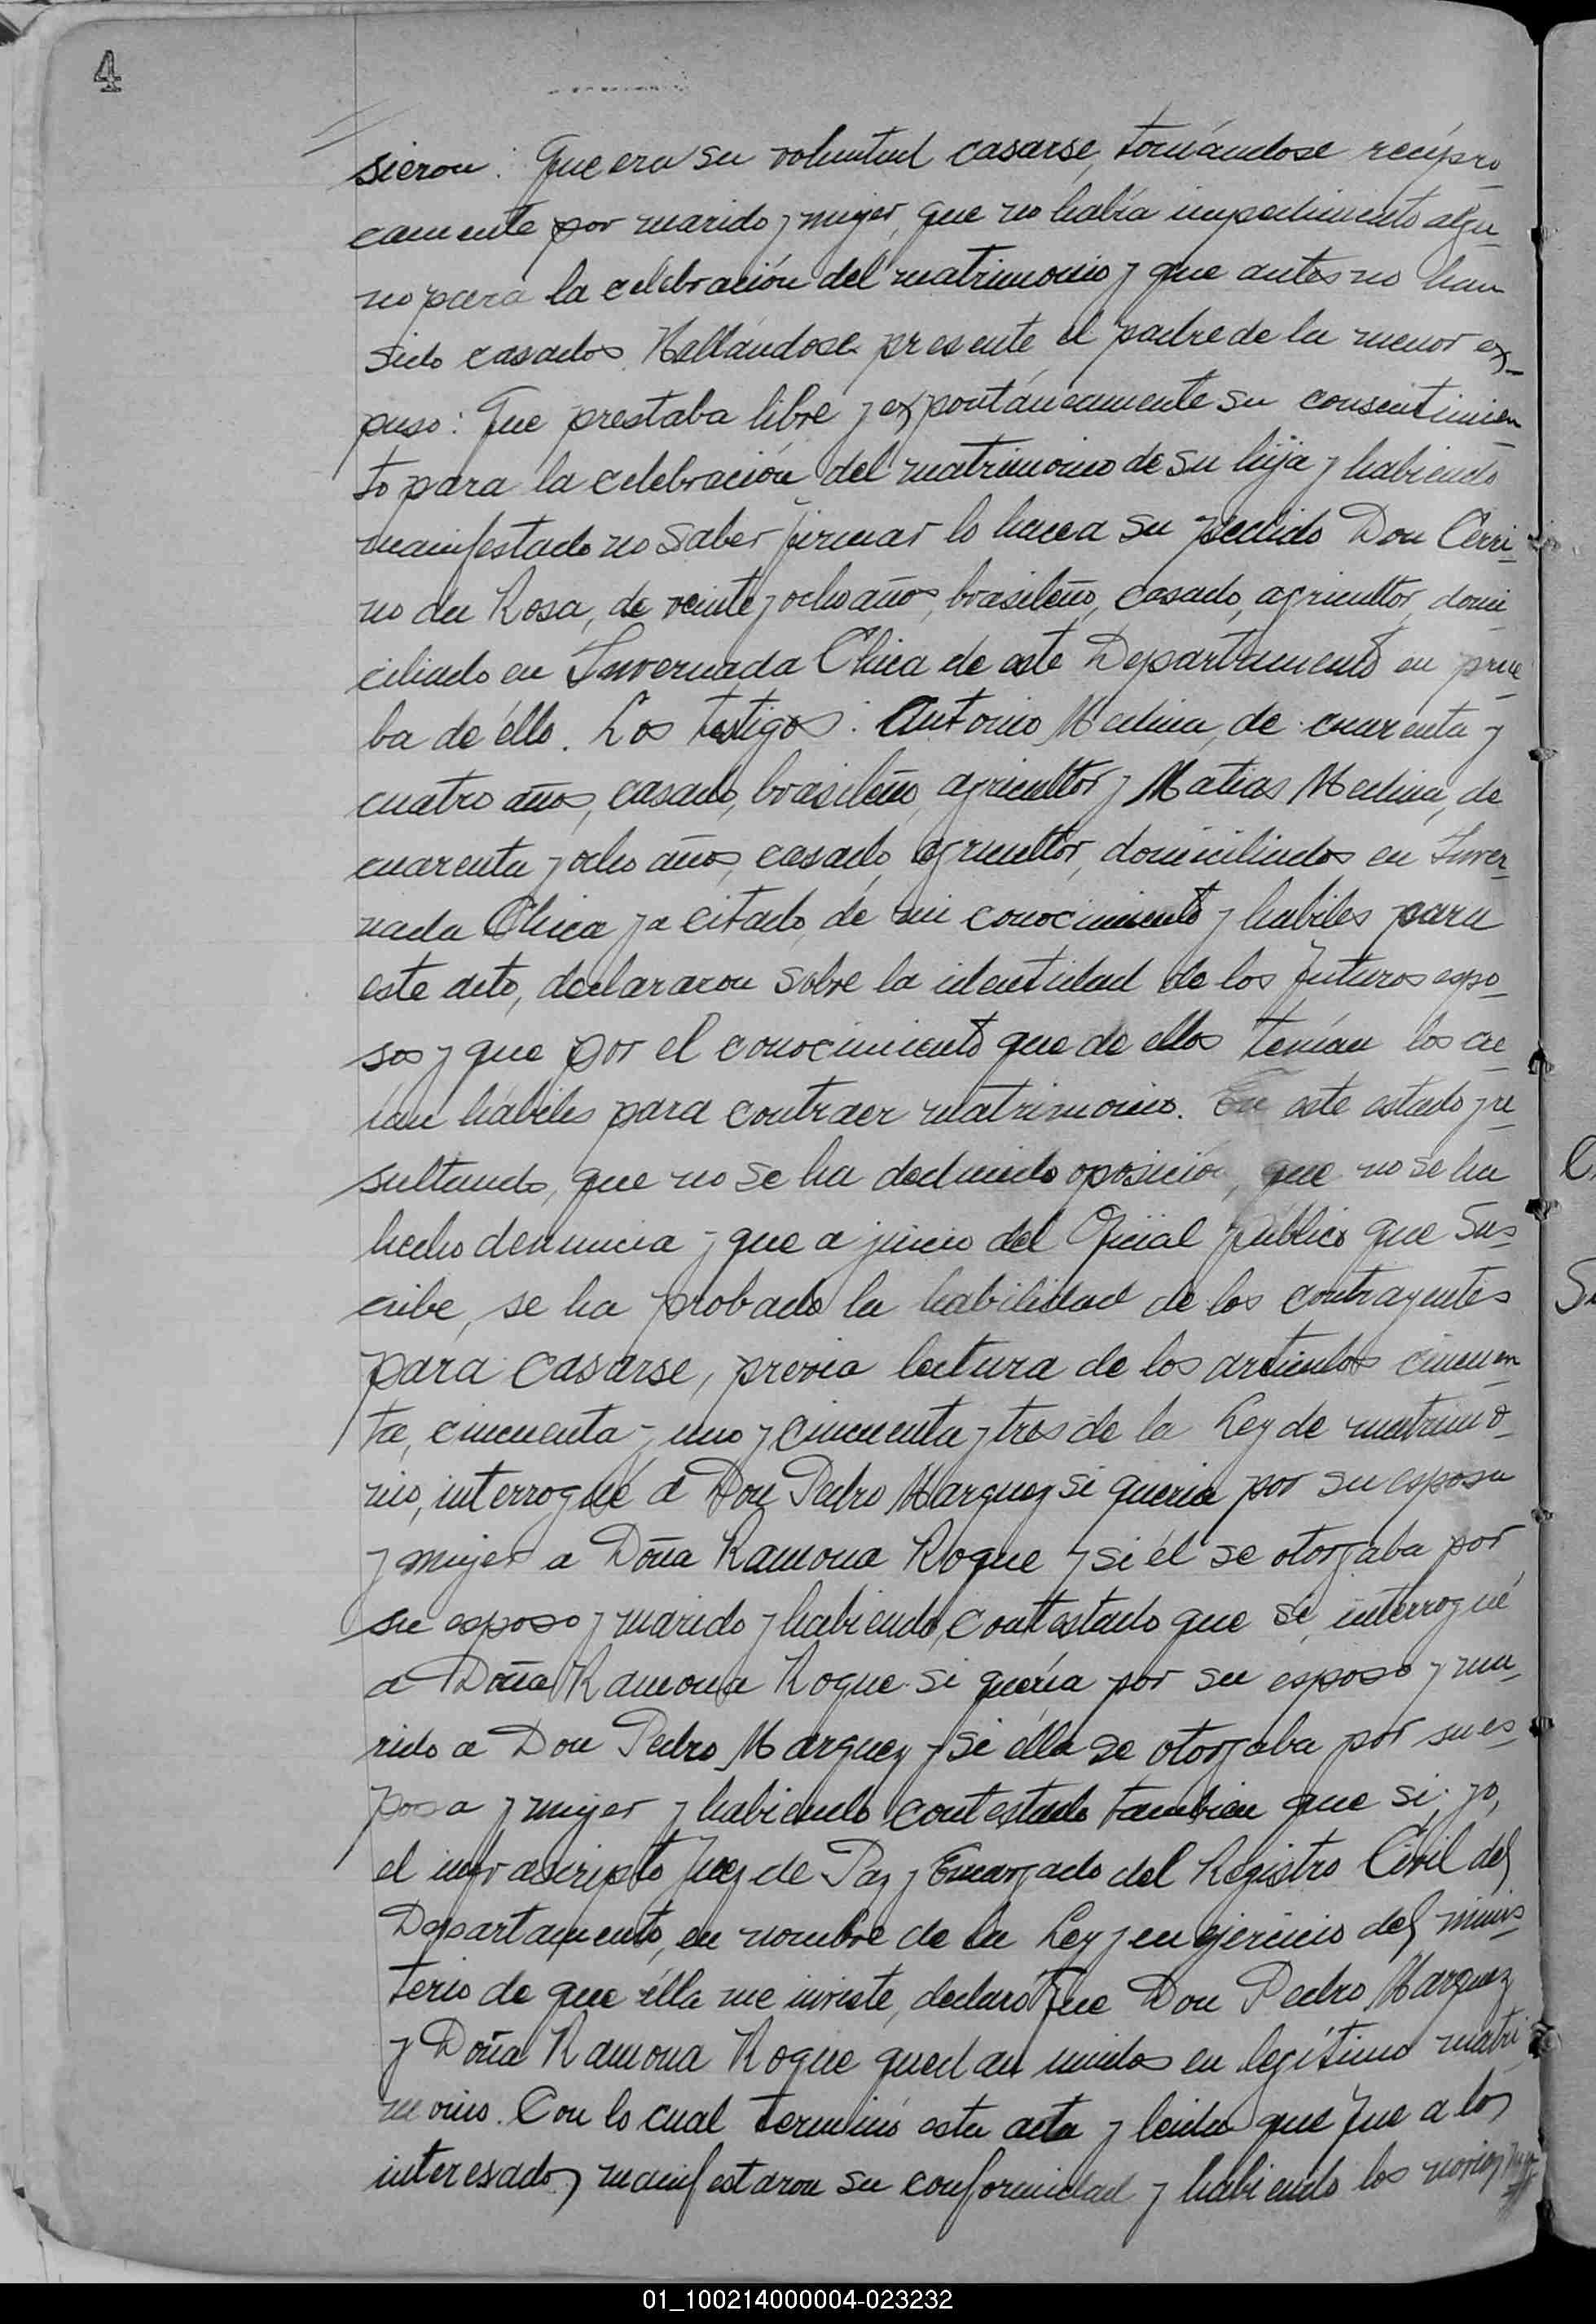 4
sieron: Que era su voluntad casarse, tomándose recípro
camente por marido y mujer, que no había impedimento algu
no para la celebración del matrimonio y que antes no han
sido casados. Hallándose presente el padre de la menor ex
puso: Que prestaba libre y expontáneamente su consentimien
to para la celebración del matrimonio de su hija y habiendo
manifestado no saber firmar lo hace a su pedido Don
da Rosa, de veinte y ocho años, brasileño, casado, agricultor, domi
ciliado en Invernada Chica de este Departamento en prue
ba de éllo. Los testigos: Antonio Medina, de cuarenta y
cuatro años, casado, brasileño, agricultor y Matias Medina, de
cuarenta y ocho años, casado, agricultor, domiciliados en Inver
nada Chica ya citado, de mi conocimiento y habiles para
este acto, declararon sobre la identidad de los futuros espo
sos y que por el conocimiento que de ellos tenían los cre
ian hábiles para contraer matrimonio. En este estado y re
sultando, que no se ha deducido oposición, que no se ha
hecho denuncia y que a juicio del Oficial público que sus
cribe, se ha probado la habilidad de los contrayentes
para casarse, previa lectura de los artículos cincuen
ta, cincuenta y uno y cincuenta y tres de la Ley de matrimo
nio, interrogué a Don Pedro Marquez si queria por su esposa
y mujer a Doña Ramona Roque y si él se otorgaba por
su esposo y marido y habiendo contestado que si, interrogué
a Doña Ramona Roque si quería por su esposo y ma
rido a Don Pedro Marquez y si élla se otorgaba por su es
posa y mujer y habiendo contestado tambien que si; yo,
el infrascripto Juez de Paz y Encargado del Registro Civil del
Departamento, en nombre de la Ley y en ejercicio del minis
terio de que élla me inviste, declaro Que Don Pedro Marquez
y Doña Ramona Roque quedan unidos en legítimo matri
monio. Con lo cual terminó esta acta y leida que fue a los
interesados manifestaron su conformidad y habiendo los novios
01_100214000004-023232